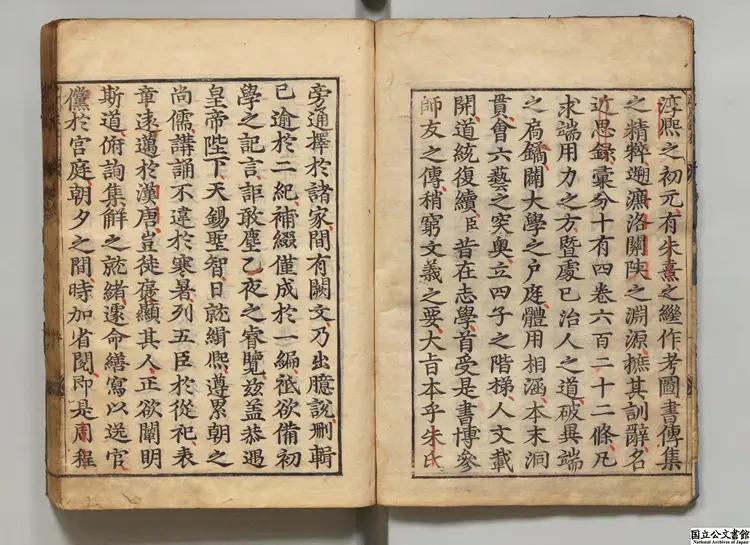 淳熙之初元有朱熹之繼作考圖書傳集
之精粹遡濂洛關陝之淵源摭其訓辭名
近思錄彙分十有四卷六百二十二條凡
求端用力之方曁處已治人之道破異端
之扃鐍闢大學之戶庭體用相涵本末洞
貫會六藝之突奧立四子之階梯人文載
開道統復續臣昔在志學首受是書博參
師友之傳稍窮文義之要大旨本乎朱氏
旁通擇於諸家間有闕文乃出臆說刪輯
已逾於二紀補綴僅成於一編祗欲備初
學之記言詎敢塵乙夜之睿覽玆蓋恭遇
皇帝陛下天錫聖智日就緝熙遵累朝之
尚儒講誦不違於寒暑列五臣於從祀表
章遠邁於漢唐豈徒褒顯其人正欲闡明
斯道俯詢集解之就緒遽命繕寫以送官
儻於宮庭朝夕之間時加省閱卽是周程
国立公文書館
National Archives of Japan